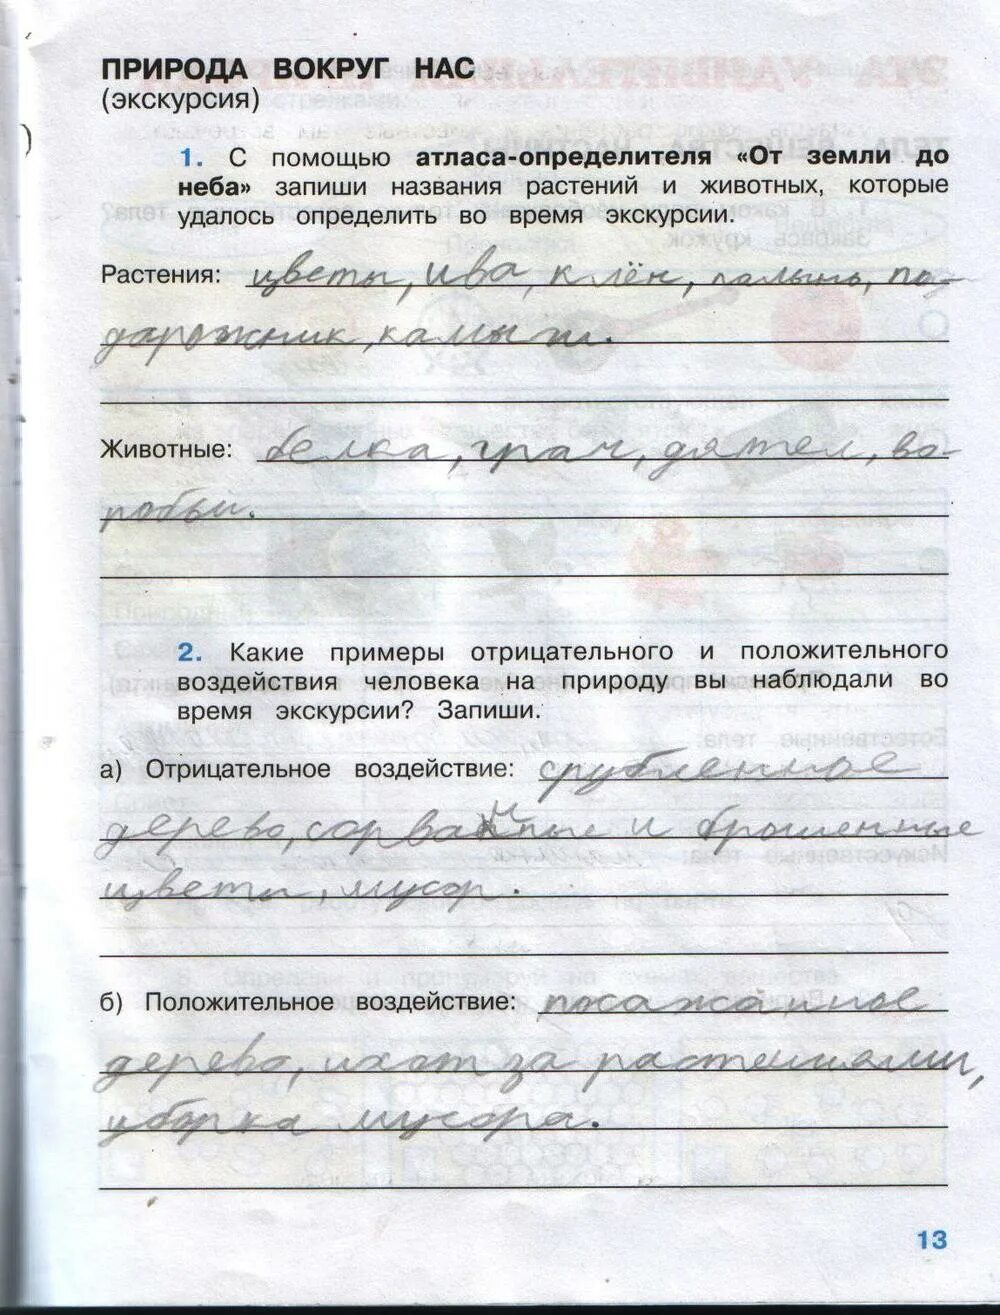 ПРИРОДА ВОКРУГ НАС
(экскурсия)
1. С помощью атласа-определителя «От земли до
неба» запиши названия растений и животных, которые
удалось определить во время экскурсии.
Растения: цветы, ива, клён, палынь, по-
дарожник, камыш.
Животные: белка, грач, дятел, во-
робьи.
2. Какие примеры отрицательного и положительного
воздействия человека на природу вы наблюдали во
время экскурсии? Запиши.
а) Отрицательное воздействие: срубленное
дерево, сорванные и брошенные
цветы, мусор.
б) Положительное воздействие: посажанное
дерево, ухот за растениями,
уборка мусора.
13